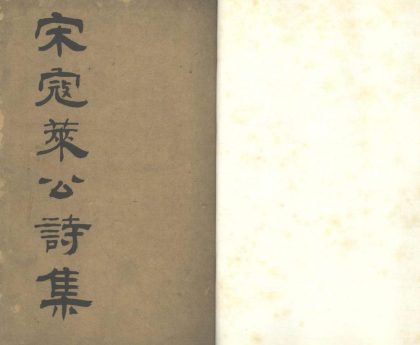 宋寇萊公詩集